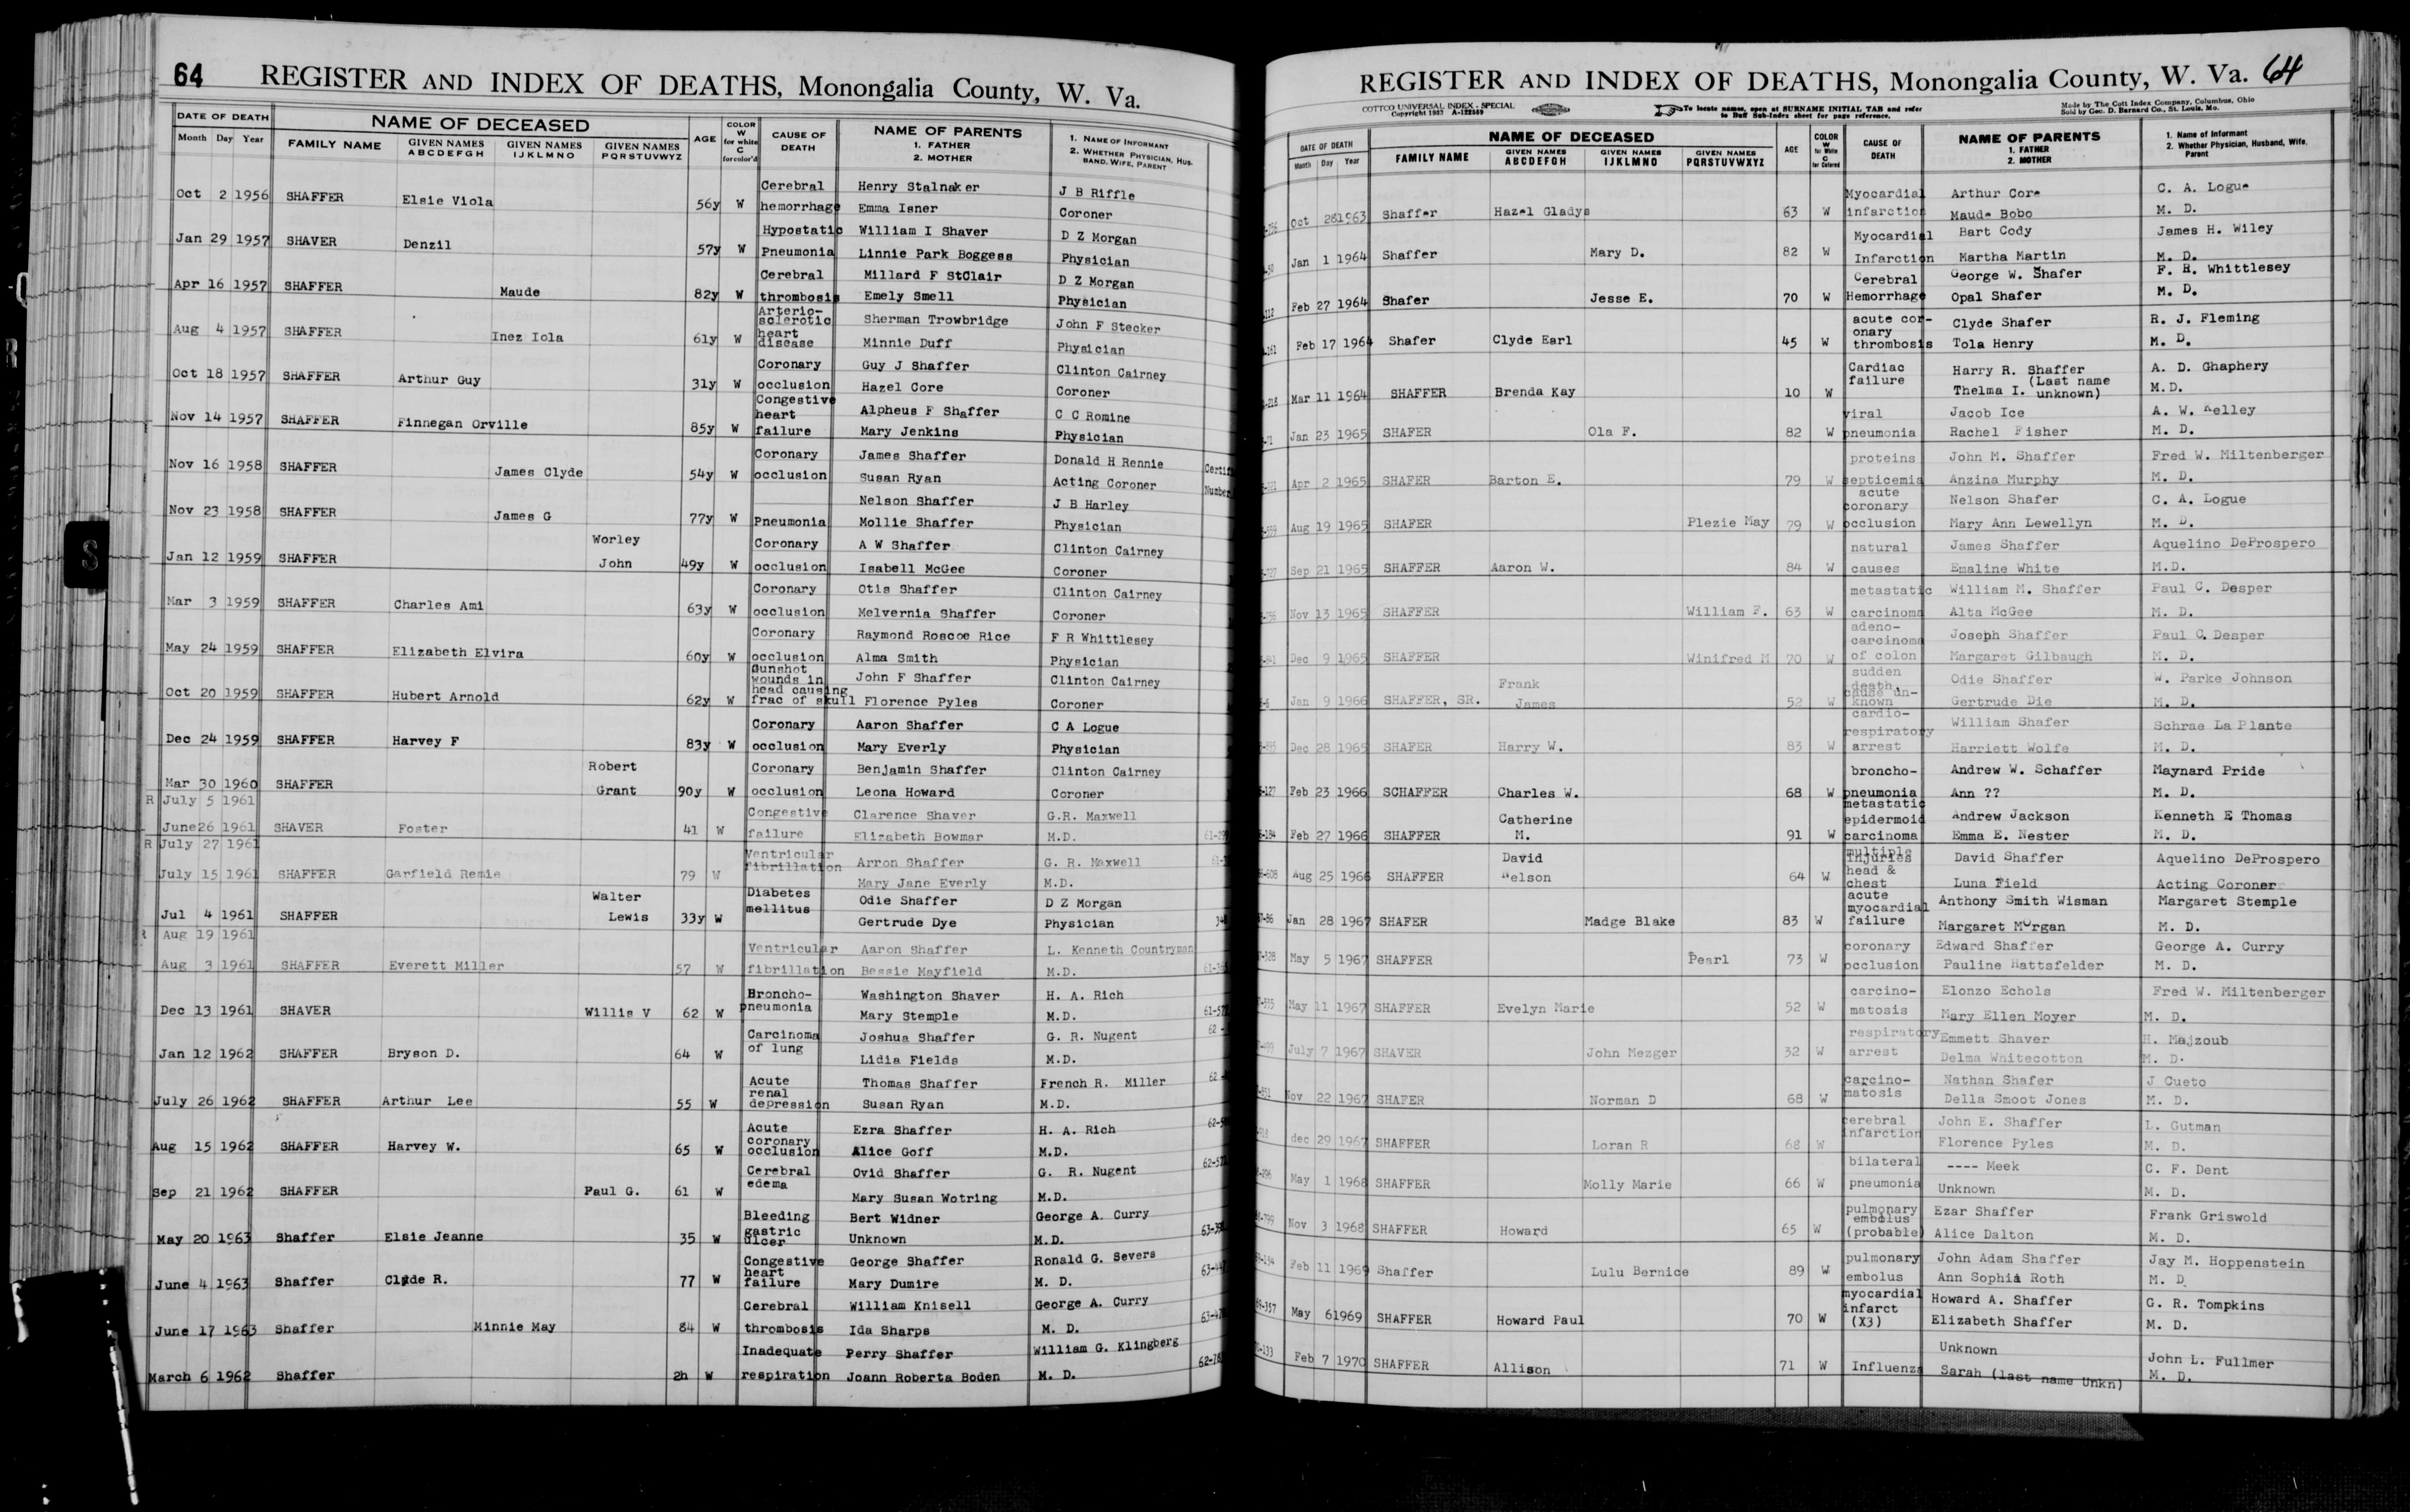 64 REGISTER AND INDEX OF DEATHS, Monongalia County, W. Va.
DATE OF DEATH NAME OF DECEASED AGE COLOR W for white C for color'd CAUSE OF DEATH NAME OF PARENTS 1. FATHER 2. MOTHER 1. NAME OF INFORMANT 2. WHETHER PHYSICIAN, HUSBAND, WIFE, PARENT
Month Day Year FAMILY NAME GIVEN NAMES ABCDEFGH GIVEN NAMES IJKLMNO GIVEN NAMES PQRSTUVWXYZ
Cerebral Henry Stalnaker J B Riffle
Oct 2 1956 SHAFFER Elsie Viola 56y W hemorrhage Emma Isner Coroner
Hypostatic William I Shaver D Z Morgan
Jan 29 1957 SHAVER Denzil 57y W Pneumonia Linnie Park Boggess Physician
Cerebral Millard F StClair D Z Morgan
Apr 16 1957 SHAFFER Maude 82y W thrombosis Emely Smell Physician
Arterio-
sclerotic Sherman Trowbridge John F Stecker
heart
Aug 4 1957 SHAFFER Inez Iola 61y W disease Minnie Duff Physician
Coronary Guy J Shaffer Clinton Cairney
Oct 18 1957 SHAFFER Arthur Guy 31y W occlusion Hazel Core Coroner
Congestive
heart Alpheus F Shaffer C C Romine
Nov 14 1957 SHAFFER Finnegan Orville 85y W failure Mary Jenkins Physician
Coronary James Shaffer Donald H Rennie
Nov 16 1958 SHAFFER James Clyde 54y W occlusion Susan Ryan Acting Coroner
Nelson Shaffer J B Harley
Nov 23 1958 SHAFFER James G 77y W Pneumonia Mollie Shaffer Physician
Worley Coronary A W Shaffer Clinton Cairney
Jan 12 1959 SHAFFER John 49y W occlusion Isabell McGee Coroner
Coronary Otis Shaffer Clinton Cairney
Mar 3 1959 SHAFFER Charles Ami 63y W occlusion Melvernia Shaffer Coroner
Coronary Raymond Roscoe Rice F R Whittlesey
May 24 1959 SHAFFER Elizabeth Elvira 60y W occlusion Alma Smith Physician
Gunshot
wounds in John F Shaffer Clinton Cairney
head causing
Oct 20 1959 SHAFFER Hubert Arnold 62y W frac of skull Florence Pyles Coroner
Coronary Aaron Shaffer C A Logue
Dec 24 1959 SHAFFER Harvey F 83y W occlusion Mary Everly Physician
Robert Coronary Benjamin Shaffer Clinton Cairney
Mar 30 1960 SHAFFER Grant 90y W occlusion Leona Howard Coroner
R July 5 1961 Congestive Clarence Shaver G.R. Maxwell
June 26 1961 SHAVER Foster 41 W failure Elizabeth Bowmar M.D.
R July 27 1961 Ventricular Arron Shaffer G. R. Maxwell
July 15 1961 SHAFFER Garfield Remie 79 W fibrillation Mary Jane Everly M.D.
Walter Diabetes Odie Shaffer D Z Morgan
Jul 4 1961 SHAFFER Lewis 33y W mellitus Gertrude Dye Physician
R Aug 19 1961 Ventricular Aaron Shaffer L. Kenneth Countryman
Aug 3 1961 SHAFFER Everett Miller 57 W fibrillation Bessie Mayfield M.D.
Broncho- Washington Shaver H. A. Rich
Dec 13 1961 SHAVER Willis V 62 W pneumonia Mary Stemple M.D.
Carcinoma Joshua Shaffer G. R. Nugent
Jan 12 1962 SHAFFER Bryson D. 64 W of lung Lidia Fields M.D.
Acute Thomas Shaffer French R. Miller
renal
July 26 1962 SHAFFER Arthur Lee 55 W depression Susan Ryan M.D.
Acute Ezra Shaffer H. A. Rich
coronary
Aug 15 1962 SHAFFER Harvey W. 65 W occlusion Alice Goff M.D.
Cerebral Ovid Shaffer G. R. Nugent
Sep 21 1962 SHAFFER Paul G. 61 W edema Mary Susan Wotring M.D.
Bleeding Bert Widner George A. Curry
gastric
May 20 1963 Shaffer Elsie Jeanne 35 W ulcer Unknown M.D.
Congestive George Shaffer Ronald G. Severs
heart
June 4 1963 Shaffer Clyde R. 77 W failure Mary Dumire M. D.
Cerebral William Knisell George A. Curry
June 17 1963 Shaffer Minnie May 84 W thrombosis Ida Sharps M. D.
Inadequate Perry Shaffer William G. Klingberg
March 6 1962 Shaffer 2h W respiration Joann Roberta Boden M. D.
S
REGISTER AND INDEX OF DEATHS, Monongalia County, W. Va. 64
COTTCO UNIVERSAL INDEX - SPECIAL
Copyright 1933 A-122589
To locate names, open at SURNAME INITIAL TAB and refer
to Buff Sub-Index sheet for page reference.
Made by The Cott Index Company, Columbus, Ohio
Sold by Geo. D. Barnard Co., St. Louis, Mo.
DATE OF DEATH NAME OF DECEASED AGE COLOR W for White C for Colored CAUSE OF DEATH NAME OF PARENTS 1. FATHER 2. MOTHER 1. Name of Informant 2. Whether Physician, Husband, Wife, Parent
Month Day Year FAMILY NAME GIVEN NAMES ABCDEFGH GIVEN NAMES IJKLMNO GIVEN NAMES PQRSTUVWXYZ
Myocardial Arthur Core C. A. Logue
Oct 28 1963 Shaffer Hazel Gladys 63 W infarction Maude Bobo M. D.
Myocardial Bart Cody James H. Wiley
Jan 1 1964 Shaffer Mary D. 82 W Infarction Martha Martin M. D.
Cerebral George W. Shafer F. R. Whittlesey
Feb 27 1964 Shafer Jesse E. 70 W Hemorrhage Opal Shafer M. D.
acute cor- Clyde Shafer R. J. Fleming
onary
Feb 17 1964 Shafer Clyde Earl 45 W thrombosis Tola Henry M. D.
Cardiac Harry R. Shaffer A. D. Ghaphery
failure (Last name
Mar 11 1964 SHAFFER Brenda Kay 10 W Thelma I. unknown) M.D.
viral Jacob Ice A. W. Kelley
Jan 23 1965 SHAFER Ola F. 82 W pneumonia Rachel Fisher M. D.
proteins John M. Shaffer Fred W. Miltenberger
Apr 2 1965 SHAFER Barton E. 79 W septicemia Anzina Murphy M. D.
acute
coronary Nelson Shafer C. A. Logue
Aug 19 1965 SHAFER Plezie May 79 W occlusion Mary Ann Lewellyn M. D.
natural James Shaffer Aquelino DeProspero
Sep 21 1965 SHAFFER Aaron W. 84 W causes Emaline White M.D.
metastatic William M. Shaffer Paul C. Desper
Nov 13 1965 SHAFFER William F. 63 W carcinoma Alta McGee M. D.
adeno-
carcinoma Joseph Shaffer Paul C. Desper
Dec 9 1965 SHAFFER Winifred M 70 W of colon Margaret Gilbaugh M. D.
sudden
Frank death, Odie Shaffer W. Parke Johnson
cause un-
Jan 9 1966 SHAFFER, SR. James 52 W known Gertrude Die M. D.
cardio- William Shafer Schrae La Plante
respiratory
Dec 28 1965 SHAFER Harry W. 83 W arrest Harriett Wolfe M. D.
broncho- Andrew W. Schaffer Maynard Pride
Feb 23 1966 SCHAFFER Charles W. 68 W pneumonia Ann ?? M. D.
metastatic
Catherine epidermoid Andrew Jackson Kenneth E Thomas
Feb 27 1966 SHAFFER M. 91 W carcinoma Emma E. Nester M. D.
multiple
David injuries David Shaffer Aquelino DeProspero
head &
Aug 25 1966 SHAFFER Nelson 64 W chest Luna Field Acting Coroner
acute
myocardial Anthony Smith Wisman Margaret Stemple
Jan 28 1967 SHAFER Madge Blake 83 W failure Margaret Morgan M. D.
coronary Edward Shaffer George A. Curry
May 5 1967 SHAFFER Pearl 73 W occlusion Pauline Hattsfelder M. D.
carcino- Elonzo Echols Fred W. Miltenberger
May 11 1967 SHAFFER Evelyn Marie 52 W matosis Mary Ellen Moyer M. D.
respiratory Emmett Shaver H. Majzoub
July 7 1967 SHAVER John Mezger 32 W arrest Delma Whitecotton M. D.
carcino- Nathan Shafer J Cueto
Nov 22 1967 SHAFER Norman D 68 W matosis Della Smoot Jones M. D.
cerebral John E. Shaffer L. Gutman
dec 29 1967 SHAFFER Loran R 68 W infarction Florence Pyles M. D.
bilateral ---- Meek C. F. Dent
May 1 1968 SHAFFER Molly Marie 66 W pneumonia Unknown M. D.
pulmonary Ezar Shaffer Frank Griswold
embolus
Nov 3 1968 SHAFFER Howard 65 W (probable) Alice Dalton M. D.
pulmonary John Adam Shaffer Jay M. Hoppenstein
Feb 11 1969 Shaffer Lulu Bernice 89 W embolus Ann Sophia Roth M. D
myocardial Howard A. Shaffer G. R. Tompkins
infarct
May 6 1969 SHAFFER Howard Paul 70 W (X3) Elizabeth Shaffer M. D.
Unknown John L. Fullmer
Feb 7 1970 SHAFFER Allison 71 W Influenza Sarah (last name Unkn) M. D.